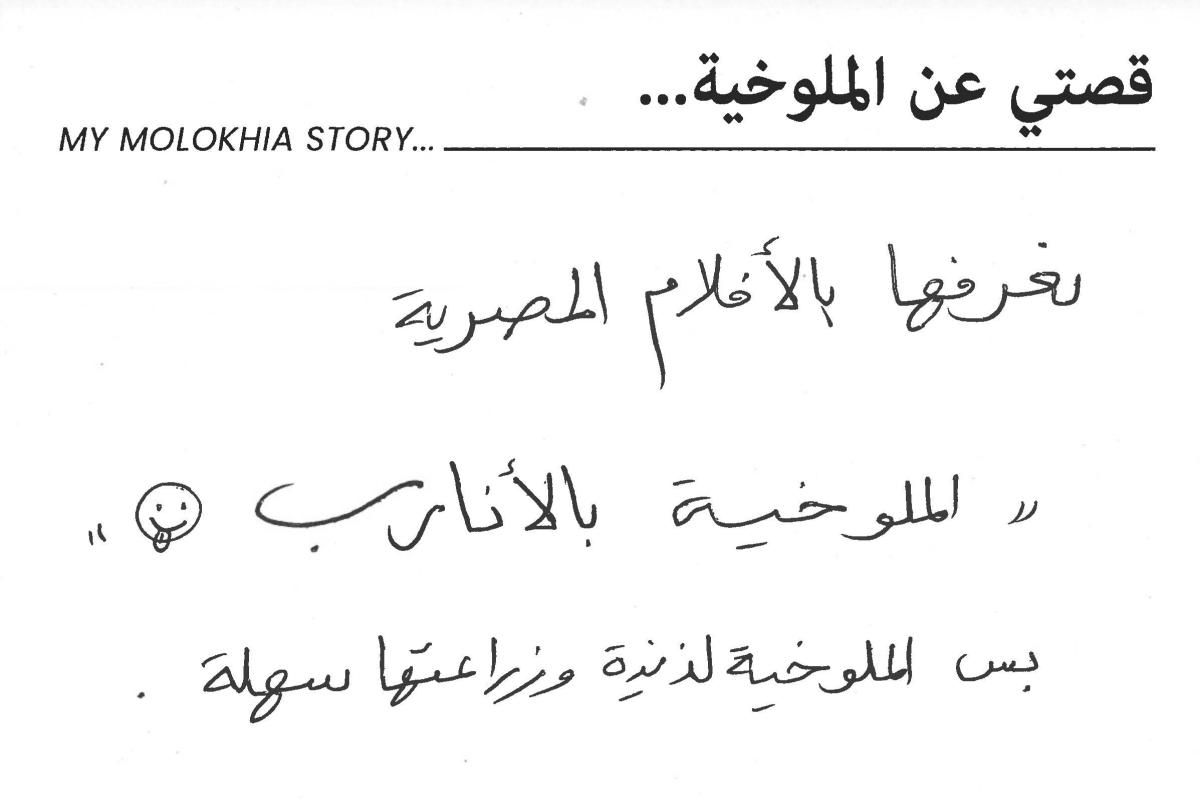 قصتي عن الملوخية...
MY MOLOKHIA STORY...
نعرفها بالأفلام المصرية
"الملوخية بالأنارب"
بس الملوخية لذيذة وزراعتها سهلة .